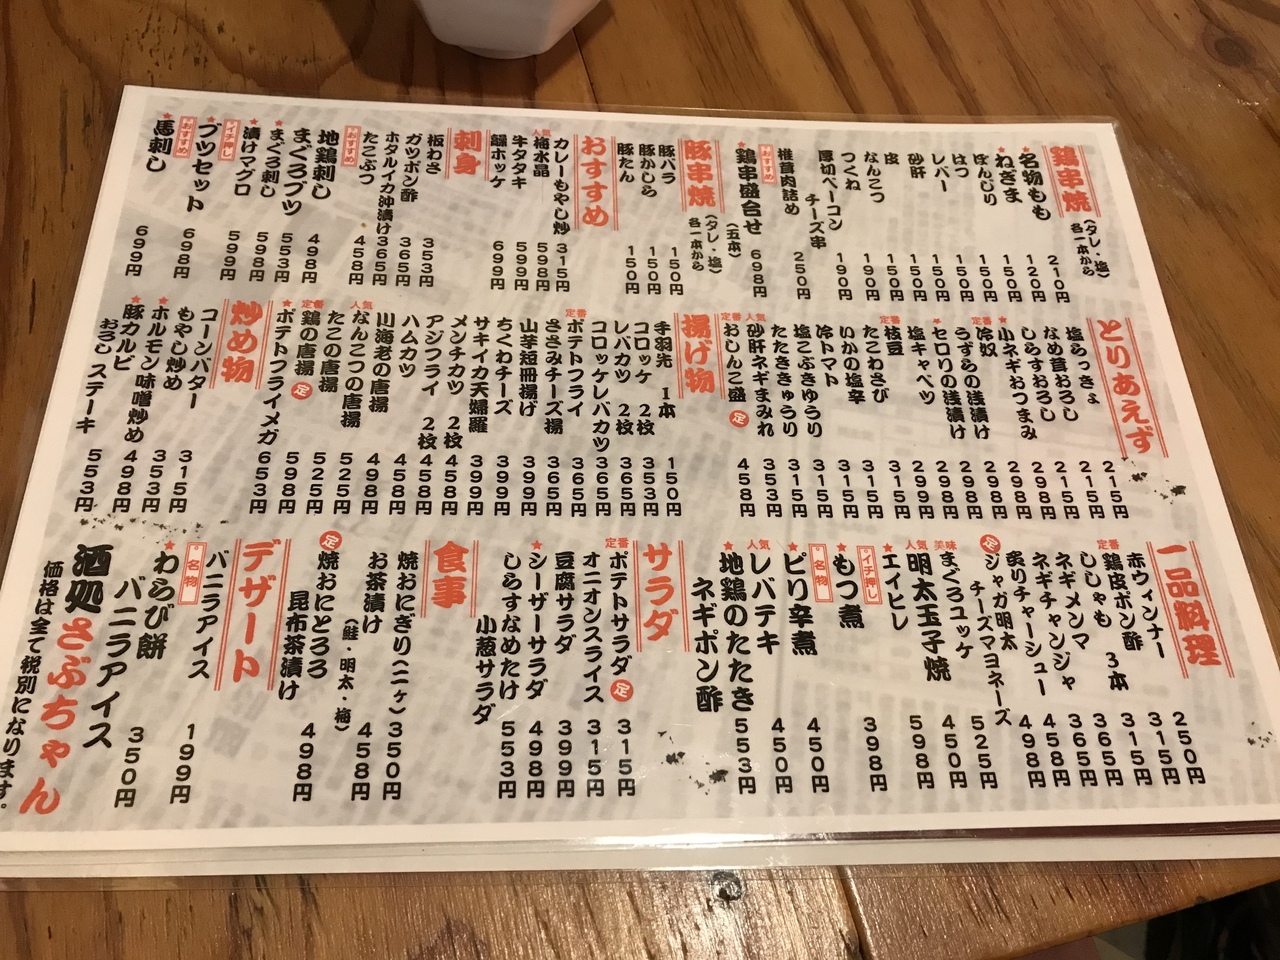 鶏串焼
(タレ・塩)
各一本から
名物もも 210円
ねぎま 120円
ぼんじり 150円
はつ 150円
レバー 150円
砂肝 150円
皮 150円
なんこつ 150円
つくね 190円
厚切ベーコン
チーズ串 190円
椎茸肉詰め 250円
おすすめ
鶏串盛合せ 698円
(五本)
豚串焼
(タレ・塩)
各一本から
豚バラ 150円
豚かしら 150円
豚たん 150円
おすすめ
カレーもやし炒 315円
人気
梅水晶 598円
牛タタキ 599円
縞ホッケ 699円
刺身
板わさ 353円
ガツポン酢 365円
ホタルイカ沖漬け 365円
たこぶつ 458円
おすすめ
地鶏刺し 498円
まぐろブツ 553円
まぐろ刺し 598円
漬けマグロ 599円
イチ押し
ブツセット 698円
おすすめ
馬刺し 699円
とりあえず
塩らっきょ 215円
なめ茸おろし 215円
しらすおろし 215円
小ネギおつまみ 298円
定番
冷奴 298円
うずらの浅漬け 298円
セロリの浅漬け 298円
塩キャベツ 298円
定番
枝豆 298円
たこわさび 315円
いかの塩辛 315円
冷トマト 315円
塩こぶきゅうり 315円
たたききゅうり 315円
人気
砂肝ネギまみれ 353円
定番
おしんこ盛 定 458円
揚げ物
手羽先 1本 150円
コロッケ 2枚 353円
レバカツ 2枚 365円
コロッケレバカツ 365円
定番
ポテトフライ 365円
ささみチーズ揚 365円
山芋短冊揚げ 399円
ちくわチーズ 399円
サキイカ天婦羅 399円
メンチカツ 2枚 458円
アジフライ 2枚 458円
ハムカツ 458円
川海老の唐揚 498円
人気
なんこつの唐揚 525円
たこの唐揚 525円
定番
鶏の唐揚 定 598円
ポテトフライメガ 653円
炒め物
コーンバター 315円
もやし炒め 353円
ホルモン味噌炒め 498円
豚カルビ
おろしステーキ 553円
一品料理
赤ウィンナー 250円
定番
鶏皮ポン酢 315円
ししゃも 3本 315円
ネギメンマ 365円
ネギチャンジャ 365円
炙りチャーシュー 458円
定
ジャガ明太
チーズマヨネーズ 498円
美味
まぐろユッケ 525円
人気
明太玉子焼 450円
エイヒレ 598円
イチ押し
もつ煮 398円
名物
ピリ辛煮 450円
レバテキ 450円
人気
地鶏のたたき
ネギポン酢 553円
サラダ
定番
ポテトサラダ 定 315円
オニオンスライス 315円
豆腐サラダ 399円
シーザーサラダ 498円
しらすなめたけ
小葱サラダ 553円
食事
焼おにぎり(二ヶ) 350円
お茶漬け 458円
(鮭・明太・梅)
定
焼おにとろろ
昆布茶漬け 498円
デザート
バニラアイス 199円
名物
わらび餅
バニラアイス 350円
酒処さぶちゃん
価格は全て税別になります。